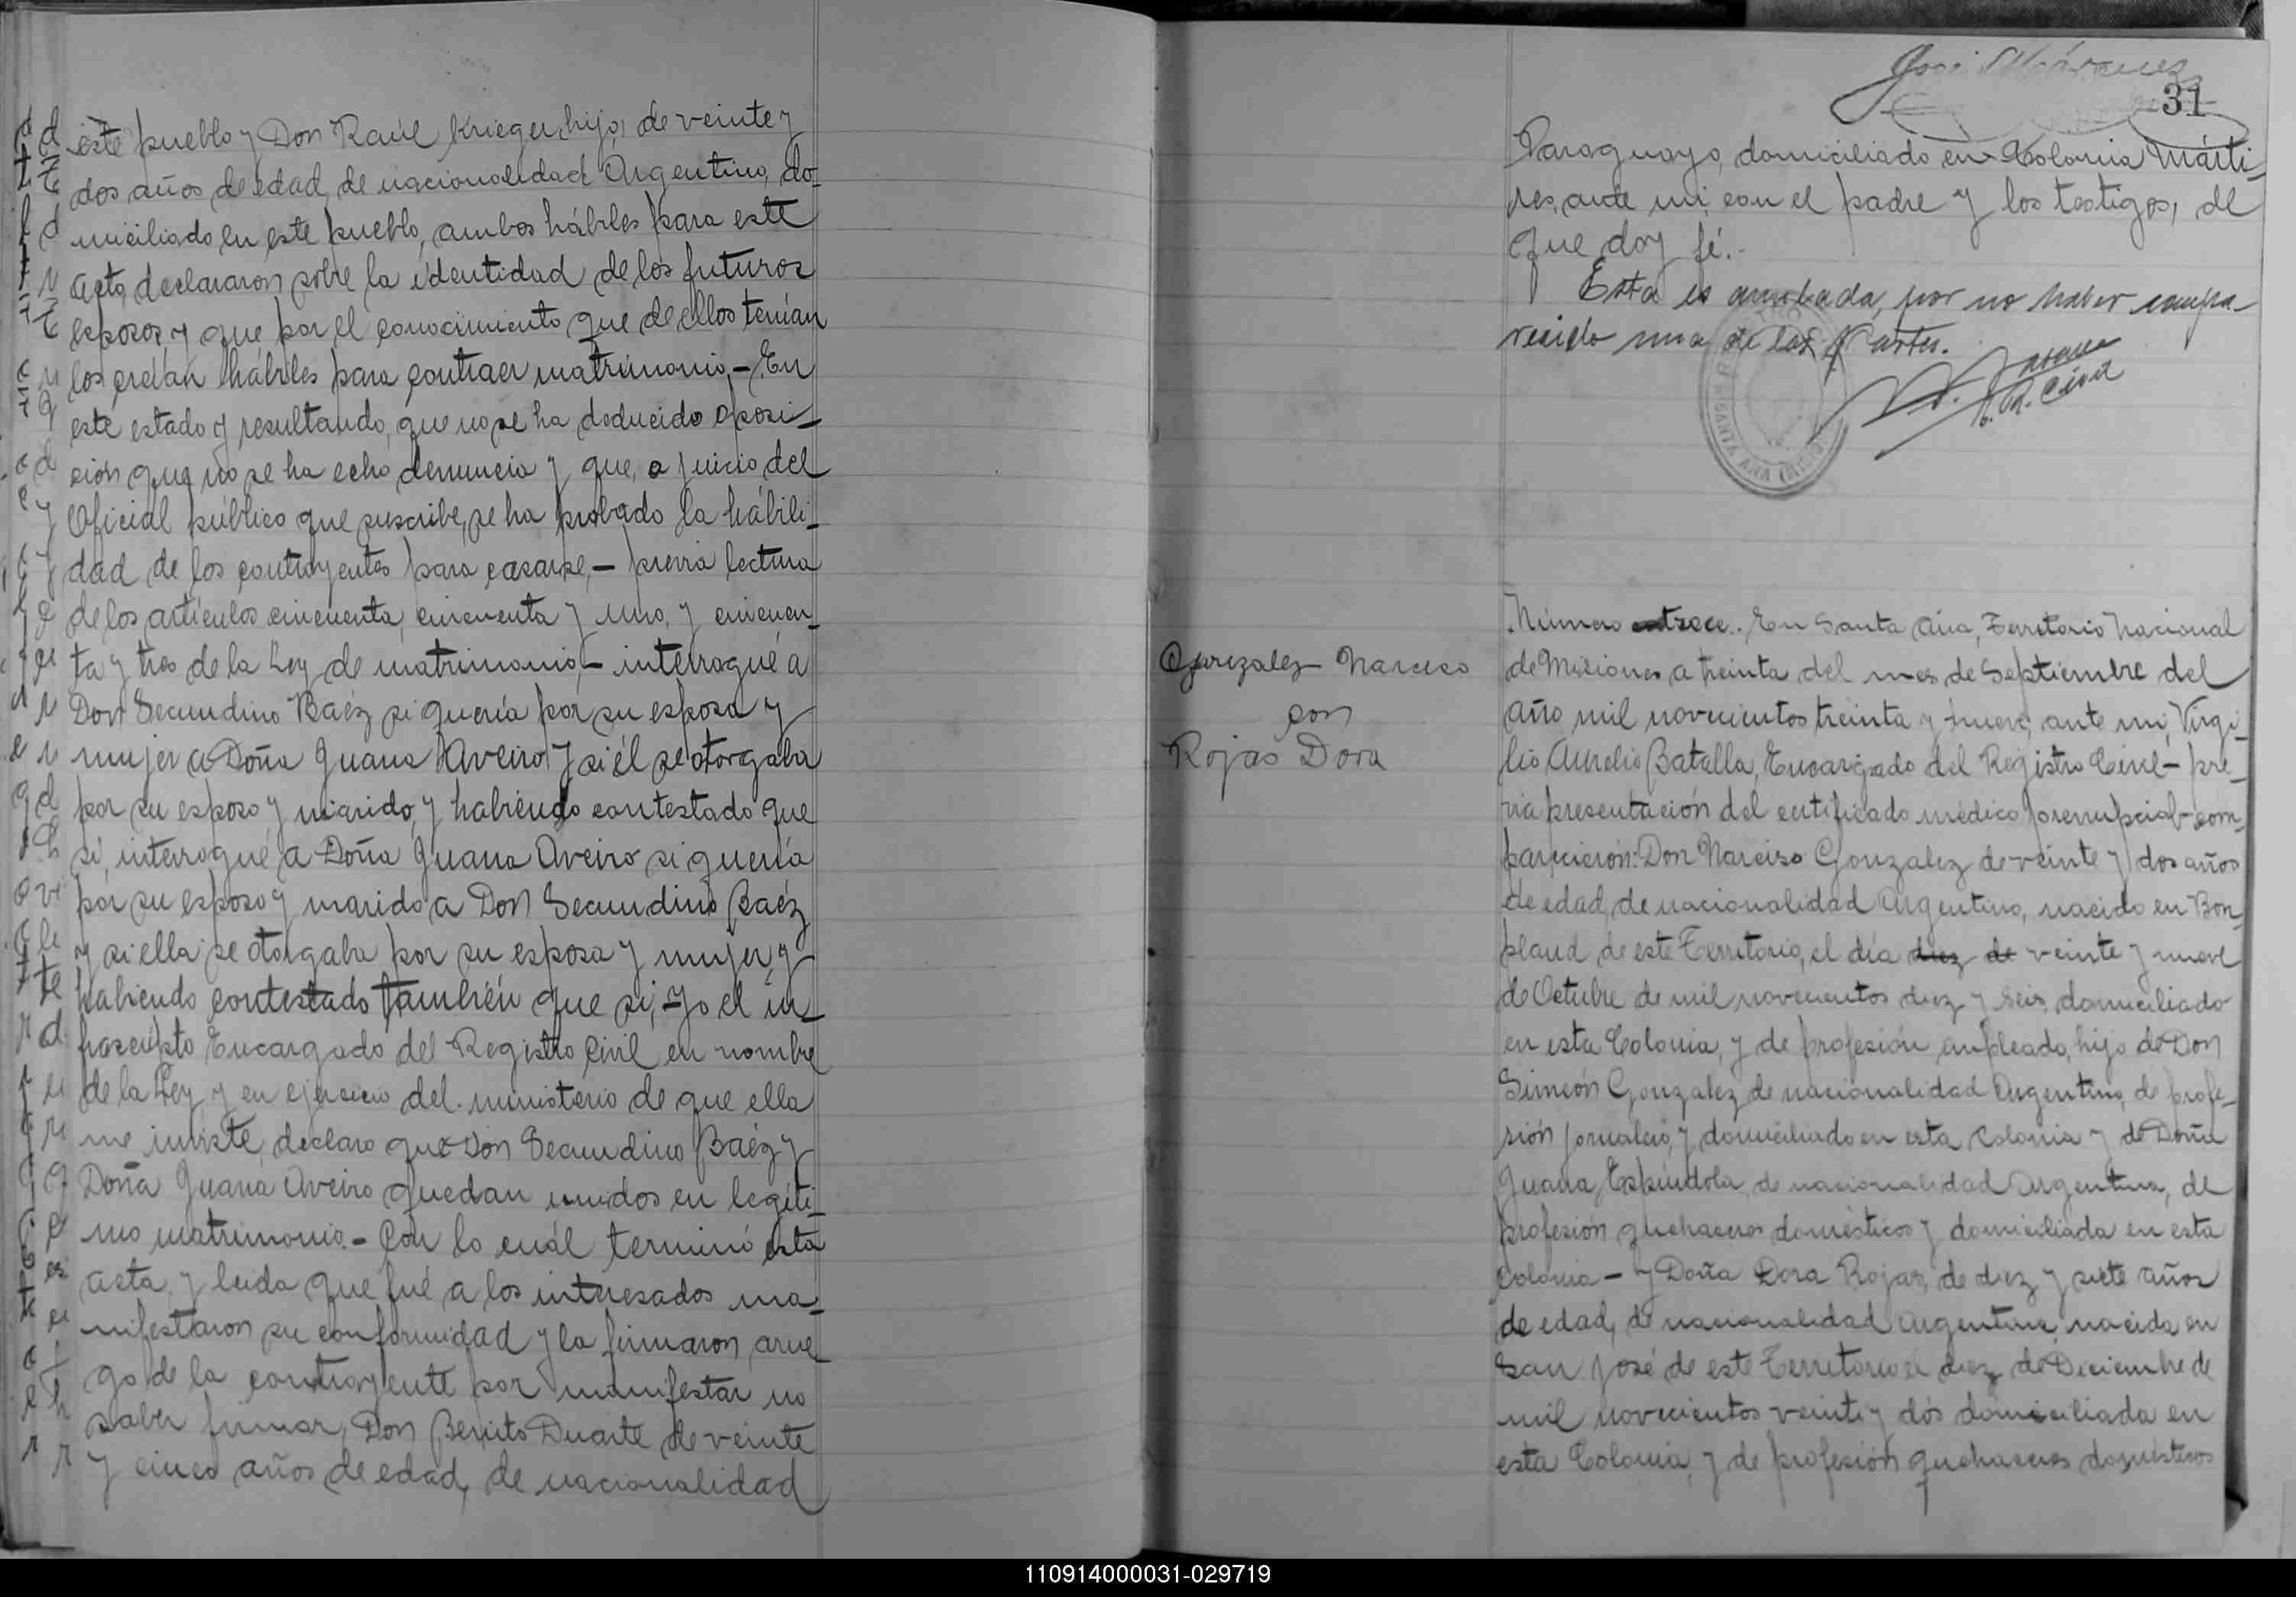 este pueblo y Don Raúl Krieger, hijo, de veinte y
dos años de edad, de nacionalidad Argentino, do-
miciliado en este pueblo, ambos hábiles para este
acto, declararon sobre la identidad de los futuros
esposos y que por el conocimiento que de ellos tenían
los creían hábiles para contraer matrimonio.- En
este estado y resultando, que no se ha deducido oposi-
ción que no se ha echo denuncia y que, a juicio del
Oficial público que suscribe, se ha probado la hábili-
dad de los contrayentes para casarse,- previa lectura
de los artículos cincuenta, cincuenta y uno, y cincuen-
ta y tres de la Ley de matrimonio,- interrogué a
Don Secundino Baéz si quería por su esposa y
mujer a Doña Juana Aveiro y si él se otorgaba
por su esposo y marido, y habiendo contestado que
si, interrogué a Doña Juana Aveiro si quería
por su esposo y marido a Don Secundino Baéz
y si ella se otorgaba por su esposa y mujer, y
habiendo contestado también que si,- yo el in-
frascripto Encargado del Registro Civil en nombre
de la Ley, y en ejercicio del ministerio de que ella
me inviste, declaro que Don Secundino Baéz y
Doña Juana Aveiro quedan unidos en legíti-
mo matrimonio.- Con lo cuál terminó esta
acta, y leida que fué a los interesados ma-
nifestaron su conformidad y la firmaron, a rue-
go de la contrayente por manifestar no
saber firmar, Don Benito Duarte de veinte
y cinco años de edad, de nacionalidad
31
Paraguayo, domiciliado en Colonia Márti-
res, ante mi, con el padre y los testigos, de
que doy fé.-
Esta es anulada, por no haber compa-
recido una de las Partes.
SANTA ANA
Gonzalez Narciso
con
Rojas Dora
Número trece.. En Santa Ana, Territorio Nacional
de Misiones a treinta del mes de Septiembre del
año mil novecientos treinta y nueve, ante mi, Virgi-
lio Aurelio Batalla, Encargado del Registro Civil- pre-
via presentación del certificado médico prenupcial- com-
parecieron: Don Narciso Gonzalez de veinte y dos años
de edad, de nacionalidad Argentino, nacido en Bon-
pland de este Territorio, el día diez de veinte y nueve
de Octubre de mil novecientos diez y seis, domiciliado
en esta Colonia, y de profesión empleado, hijo de Don
Simeón Gonzalez de nacionalidad Argentino, de profe-
sión jornalero, y domiciliado en esta Colonia y de Doña
Juana Espíndola, de nacionalidad Argentina, de
profesión quehaceres domésticos y domiciliada en esta
Colonia - y Doña Dora Rojas, de diez y siete años
de edad, de nacionalidad Argentina, nacida en
San José de este Territorio el diez de Diciembre de
mil novecientos veinte y dós domiciliada en
esta Colonia, y de profesión quehaceres domésticos
110914000031-029719